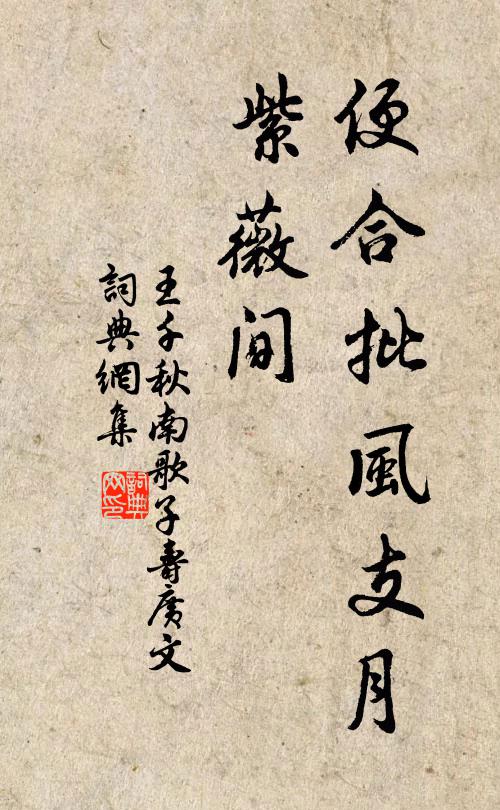 便合批風支月
紫薇间
王千秋南歌子壽廣文
詞典網集
詞典
网印